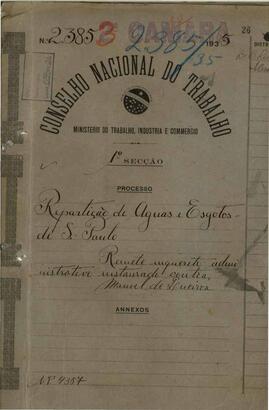 3ª CAMARA
26
N. 2.385 3 2385/35 1935
CONSELHO NACIONAL DO TRABALHO
MINISTERIO DO TRABALHO, INDUSTRIA E COMMERCIO
1ª SECÇÃO
PROCESSO
Repartição de Aguas e Esgotos
de S. Paulo
Remete inquerito admi
nistrativo instaurado contra
Manoel de
ANNEXOS
Nº 4367